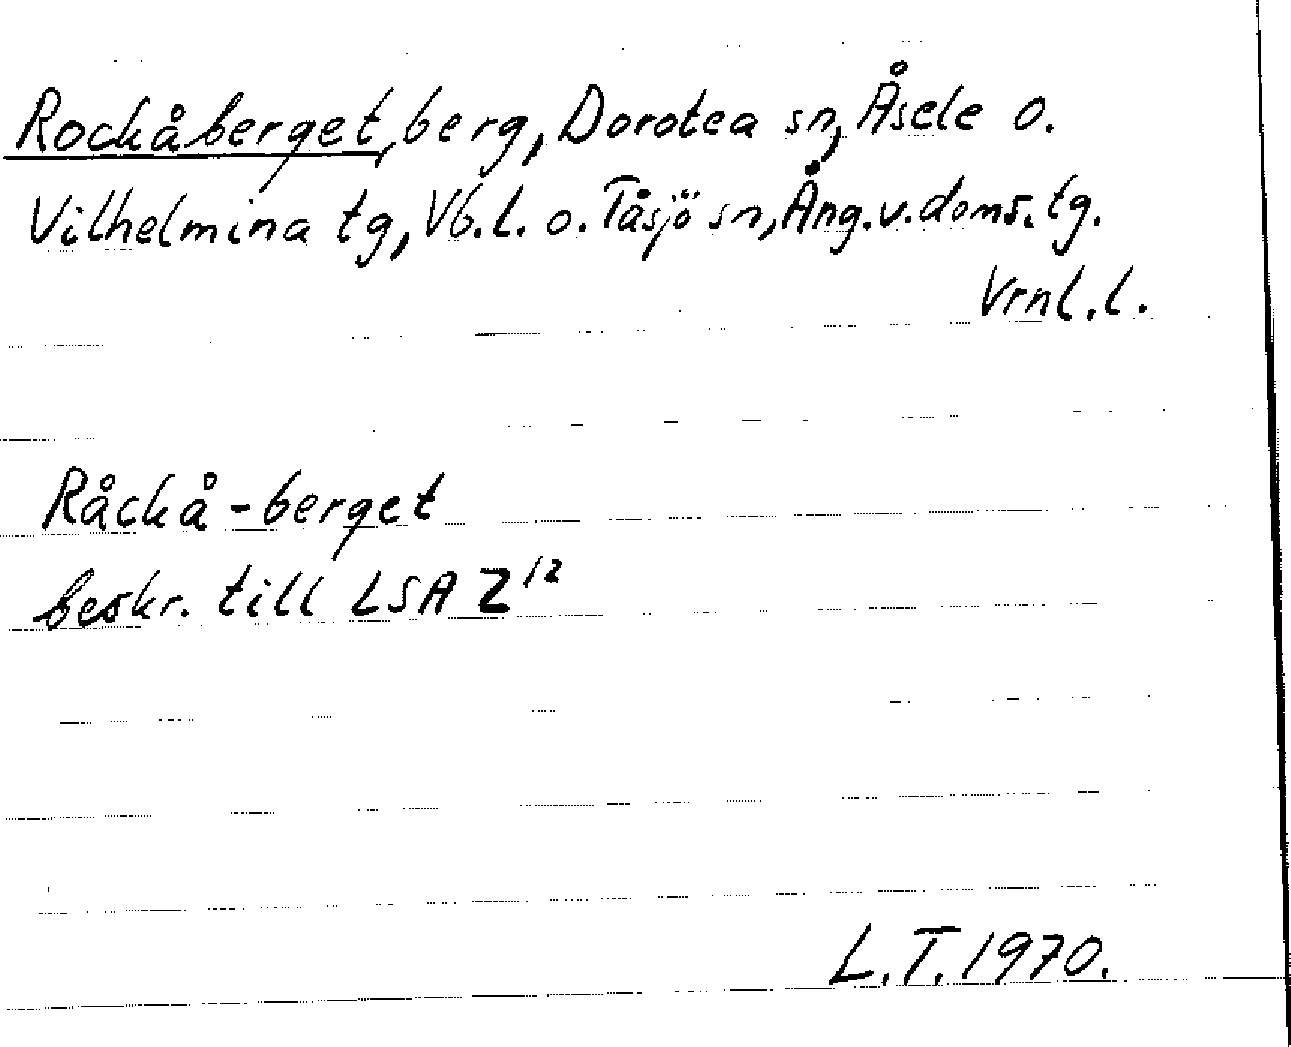 Rockåberget, berg, Dorotea sn, Åsele o.
Vilhelmina tg, Vb. l. o. Tåsjö sn, Ång. v. doms. tg.
Vrnl. l.
Råckå-berget
beskr. till LSA Z¹²
L.T. 1970.